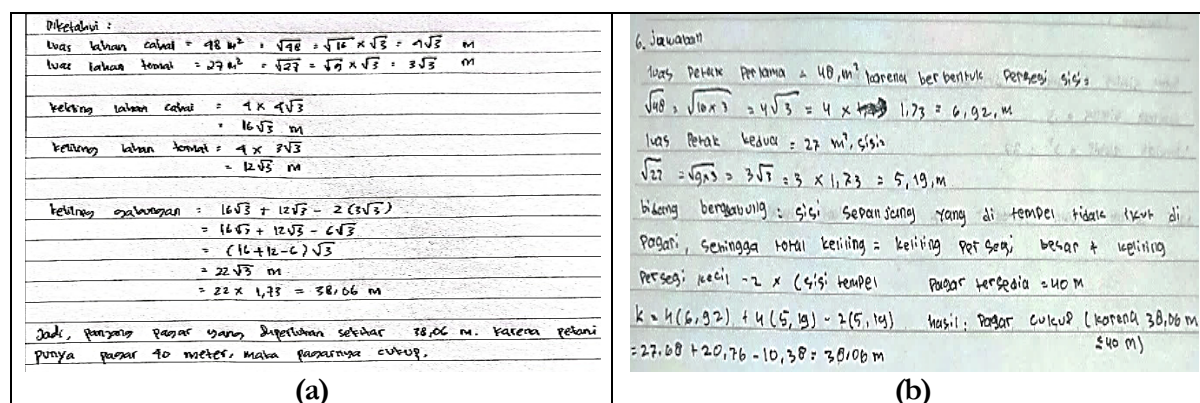 Diketahui :
luas lahan cabai = 48 m² = √48 = √16 × √3 = 4√3 m
luas lahan tomat = 27 m² = √27 = √9 × √3 = 3√3 m
keliling lahan cabai = 4 × 4√3
= 16√3 m
keliling lahan tomat = 4 × 3√3
= 12√3 m
keliling gabungan = 16√3 + 12√3 - 2 (3√3)
= 16√3 + 12√3 - 6√3
= (16+12-6) √3
= 22√3 m
= 22 × 1,73 = 38,06 m
Jadi, panjang pagar yang diperlukan sekitar 38,06 m. karena petani
punya pagar 40 meter, maka pagarnya cukup.
(a)
6. Jawaban
luas petak pertama = 48, m² karena berbentuk persegi sisi =
√48 = √16×3 = 4√3 = 4 × 1,73 = 6,92, m
luas petak kedua = 27 m², sisi =
√27 = √9×3 = 3√3 = 3 × 1,73 = 5,19, m
bidang bergabung : sisi sepanjang yang di tempel tidak ikut di
pagari, sehingga total keliling = keliling persegi besar + keliling
persegi kecil - 2 × (sisi tempel pagar tersedia = 40 m
k = 4(6,92) + 4(5,19) - 2(5,19) hasil : pagar cukup (karena 38,06 m
≤ 40 m)
= 27,68 + 20,76 - 10,38 = 38,06 m
(b)